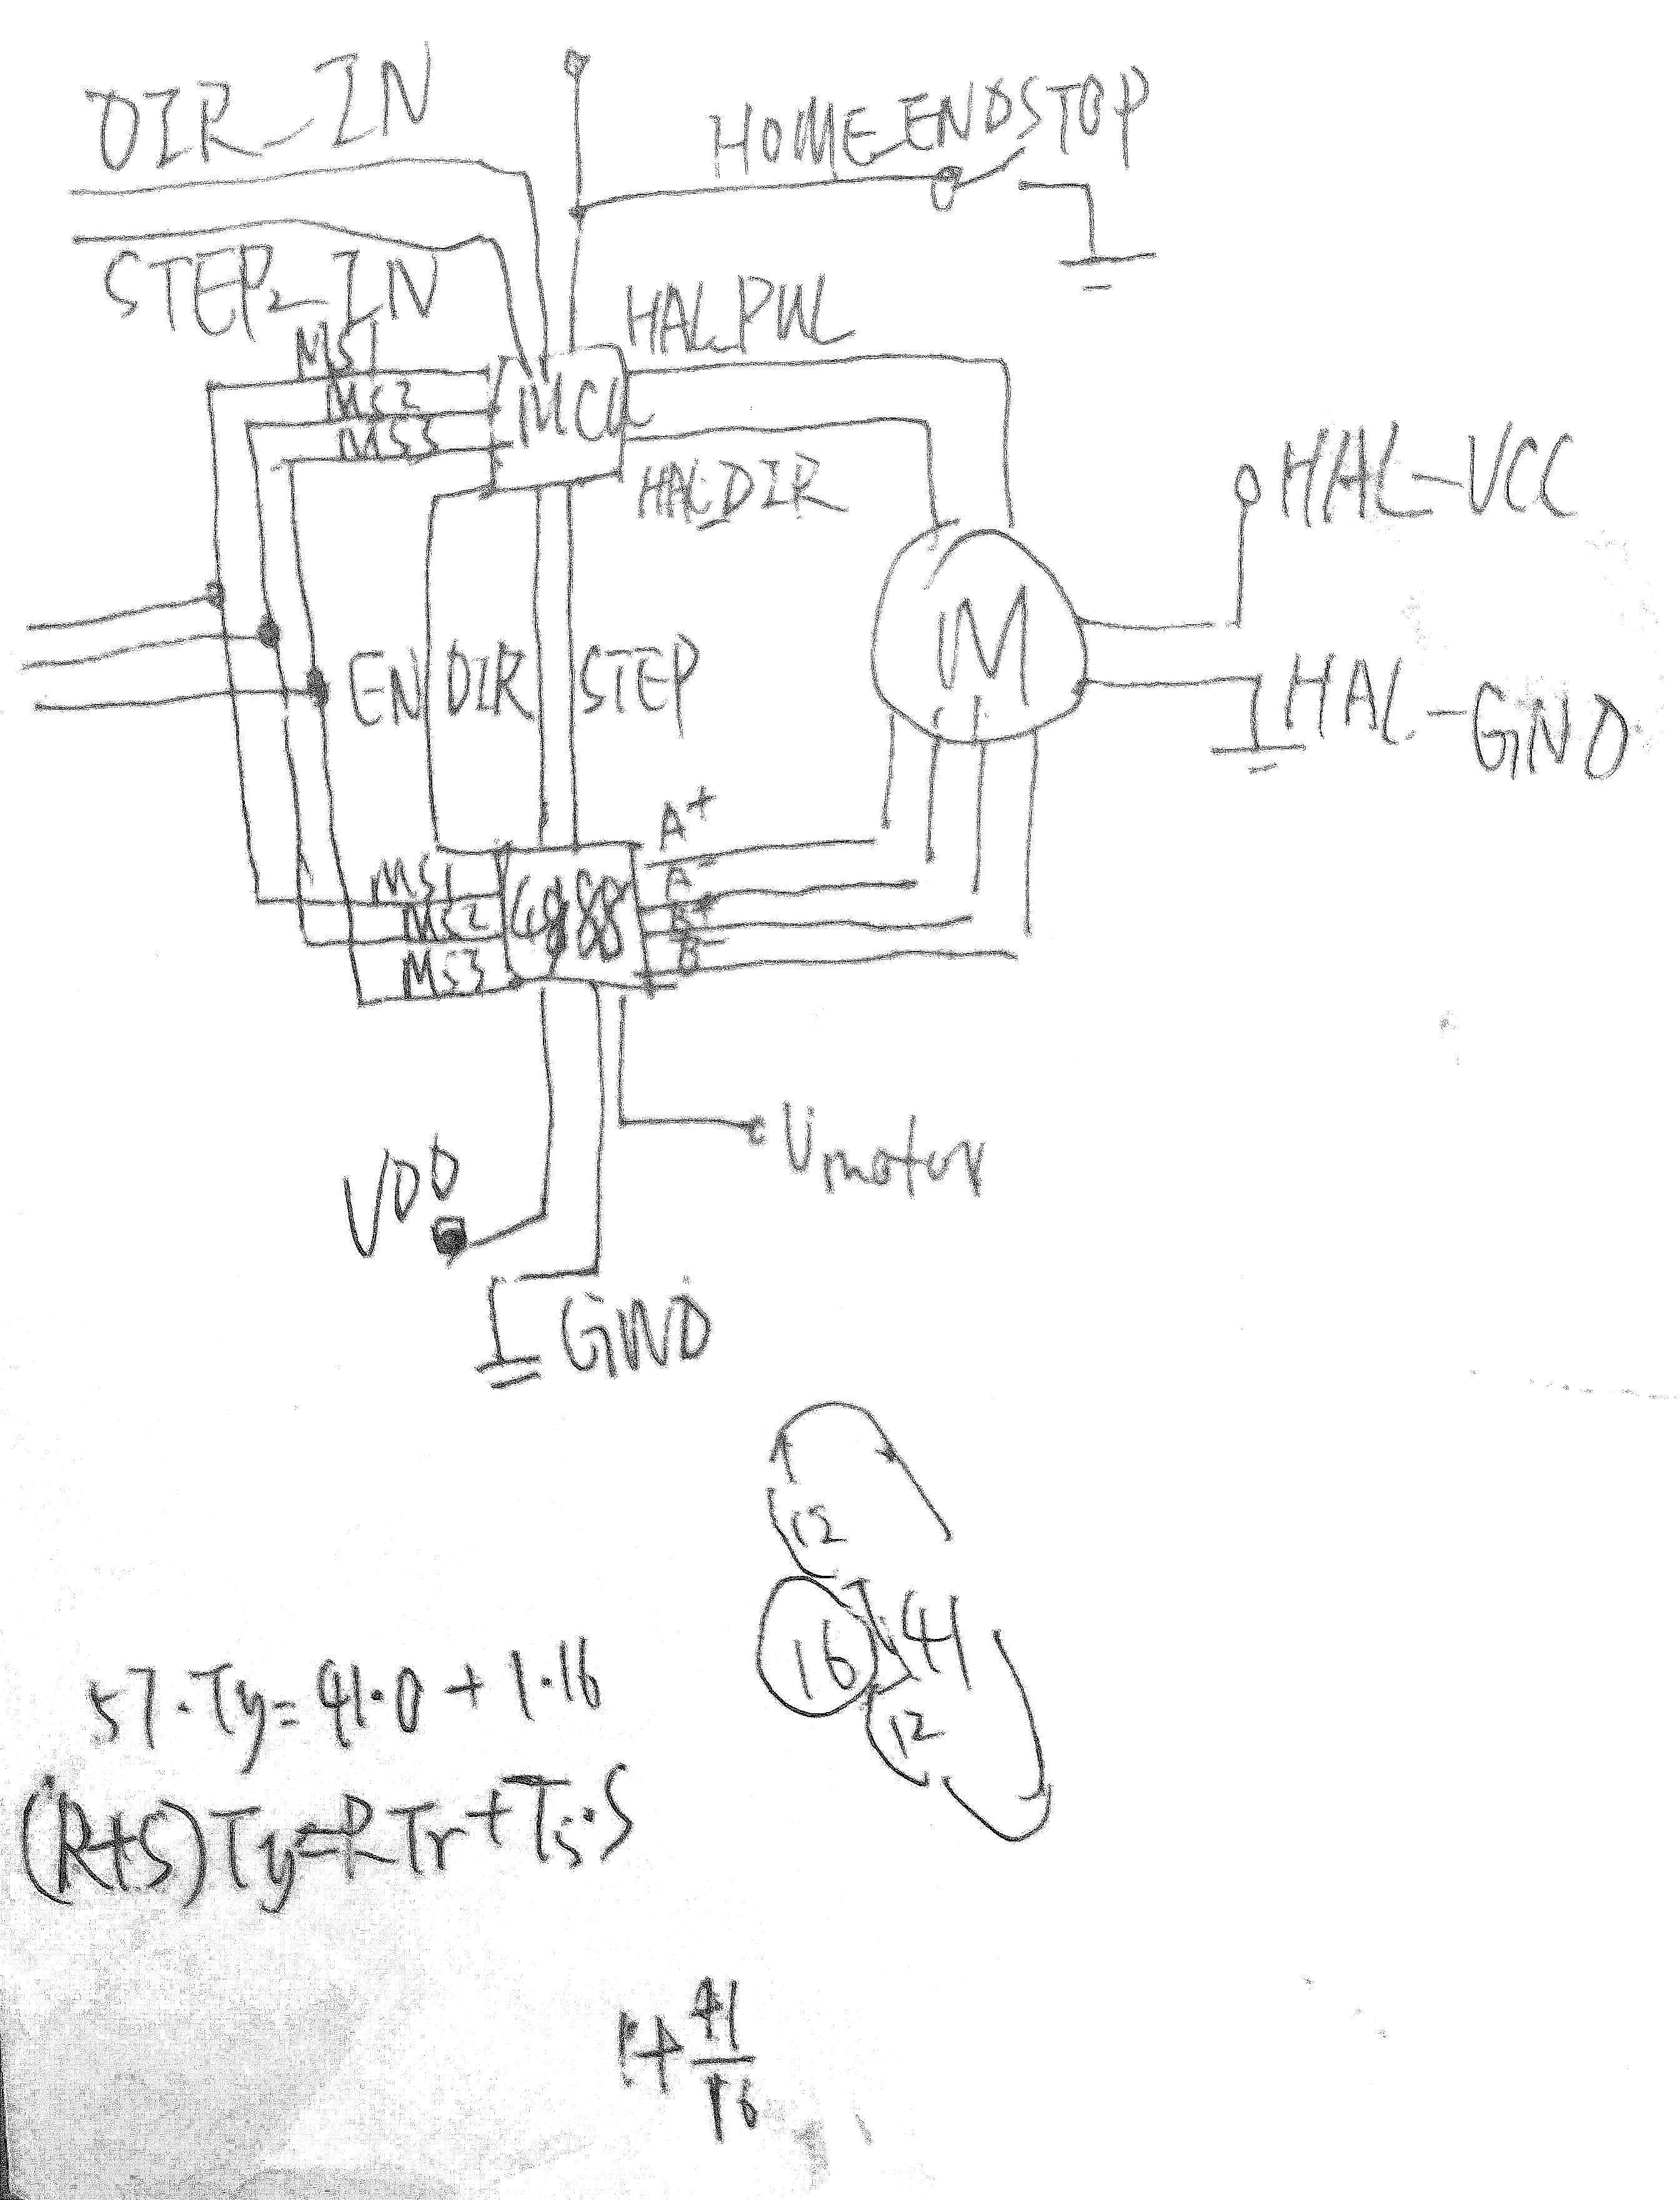 DIR_IN
HOME_ENDSTOP
STEP_IN
HAL_PUL
MS1
MS2
MS3
MCU
HAL_DIR
HAL-VCC
EN DIR STEP
M
HAL-GND
A+
A-
B+
B-
MS1
MS2
MS3
4988
Vmotor
VDD
GND
12
16
41
12
57·Ty=41·0+1·16
(R+S)Ty=RTr+Ts·S
1+41/16